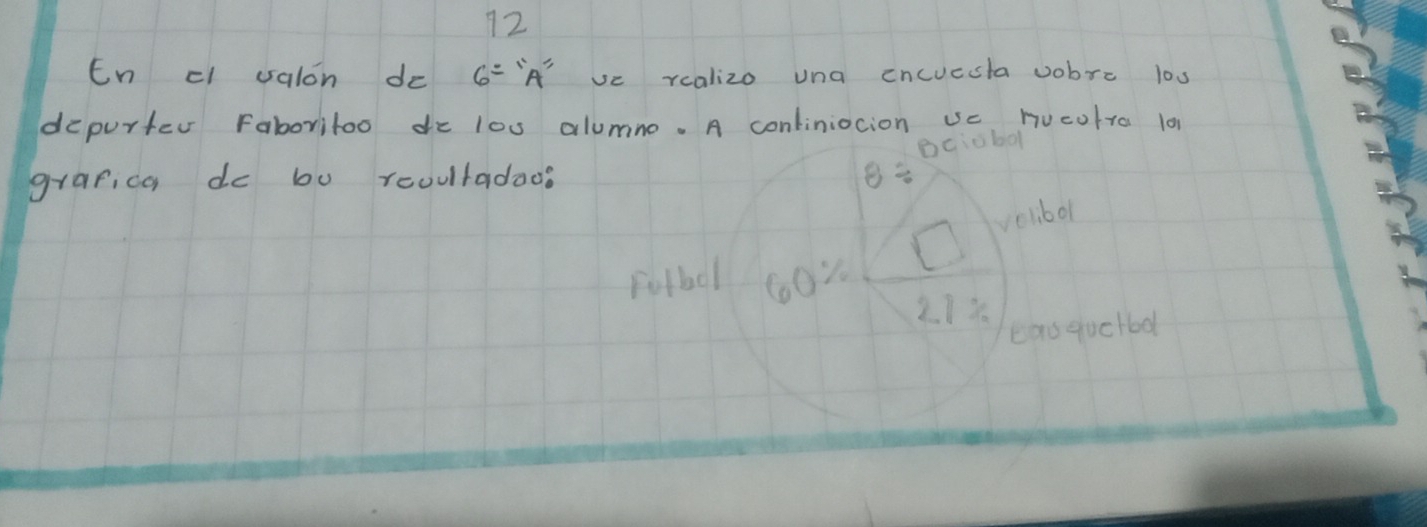 12
En el salón de 6= "A" se realizo una encuesta sobre los
deportes Faboritos de los alumno. A continiacion se mucstra la
grafica de su resultados:
Beisbol
8%
Volibol
Futbol 60%
21%
Basquetbol